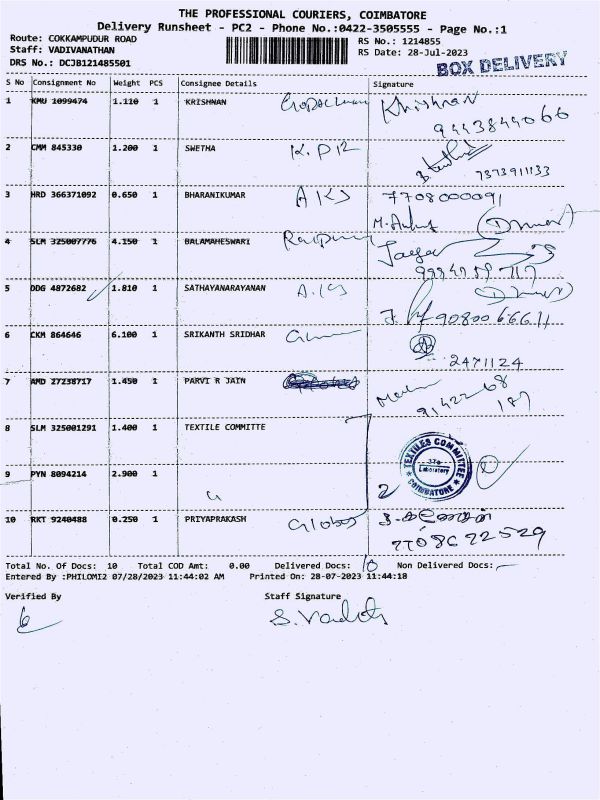 THE PROFESSIONAL COURIERS, COIMBATORE
Delivery Runsheet - PC2 - Phone No.:0422-3505555 - Page No.:1
Route: COKKAMPUDUR ROAD
Staff: VADIVANATHAN
DRS No.: DCJB121485501
RS No.: 1214855
RS Date: 28-Jul-2023
BOX DELIVERY
S No Consignment No Weight PCS Consignee Details Signature
1 KMU 1099474 1.110 1 KRISHNAN Khishnan
9443844066
2 CMM 845330 1.200 1 SWETHA K.P12
7373911133
3 HRD 366371092 0.650 1 BHARANIKUMAR AKS 7708000091
4 SLM 325007776 4.150 1 BALAMAHESWARI
5 DDG 4872682 1.810 1 SATHAYANARAYANAN
9080066611
6 CKM 864646 6.100 1 SRIKANTH SRIDHAR
2471124
7 AMD 27238717 1.450 1 PARVI R JAIN
91422 68
187
8 SLM 325001291 1.400 1 TEXTILE COMMITTE
TEXTILES COMMITTEE
Laboratory
COIMBATORE
9 PYN 8094214 2.900 1
2
10 RKT 9240488 0.250 1 PRIYAPRAKASH Globus
Total No. Of Docs: 10 Total COD Amt: 0.00 Delivered Docs: 10 Non Delivered Docs: -
Entered By :PHILOMI2 07/28/2023 11:44:02 AM Printed On: 28-07-2023 11:44:18
Verified By Staff Signature